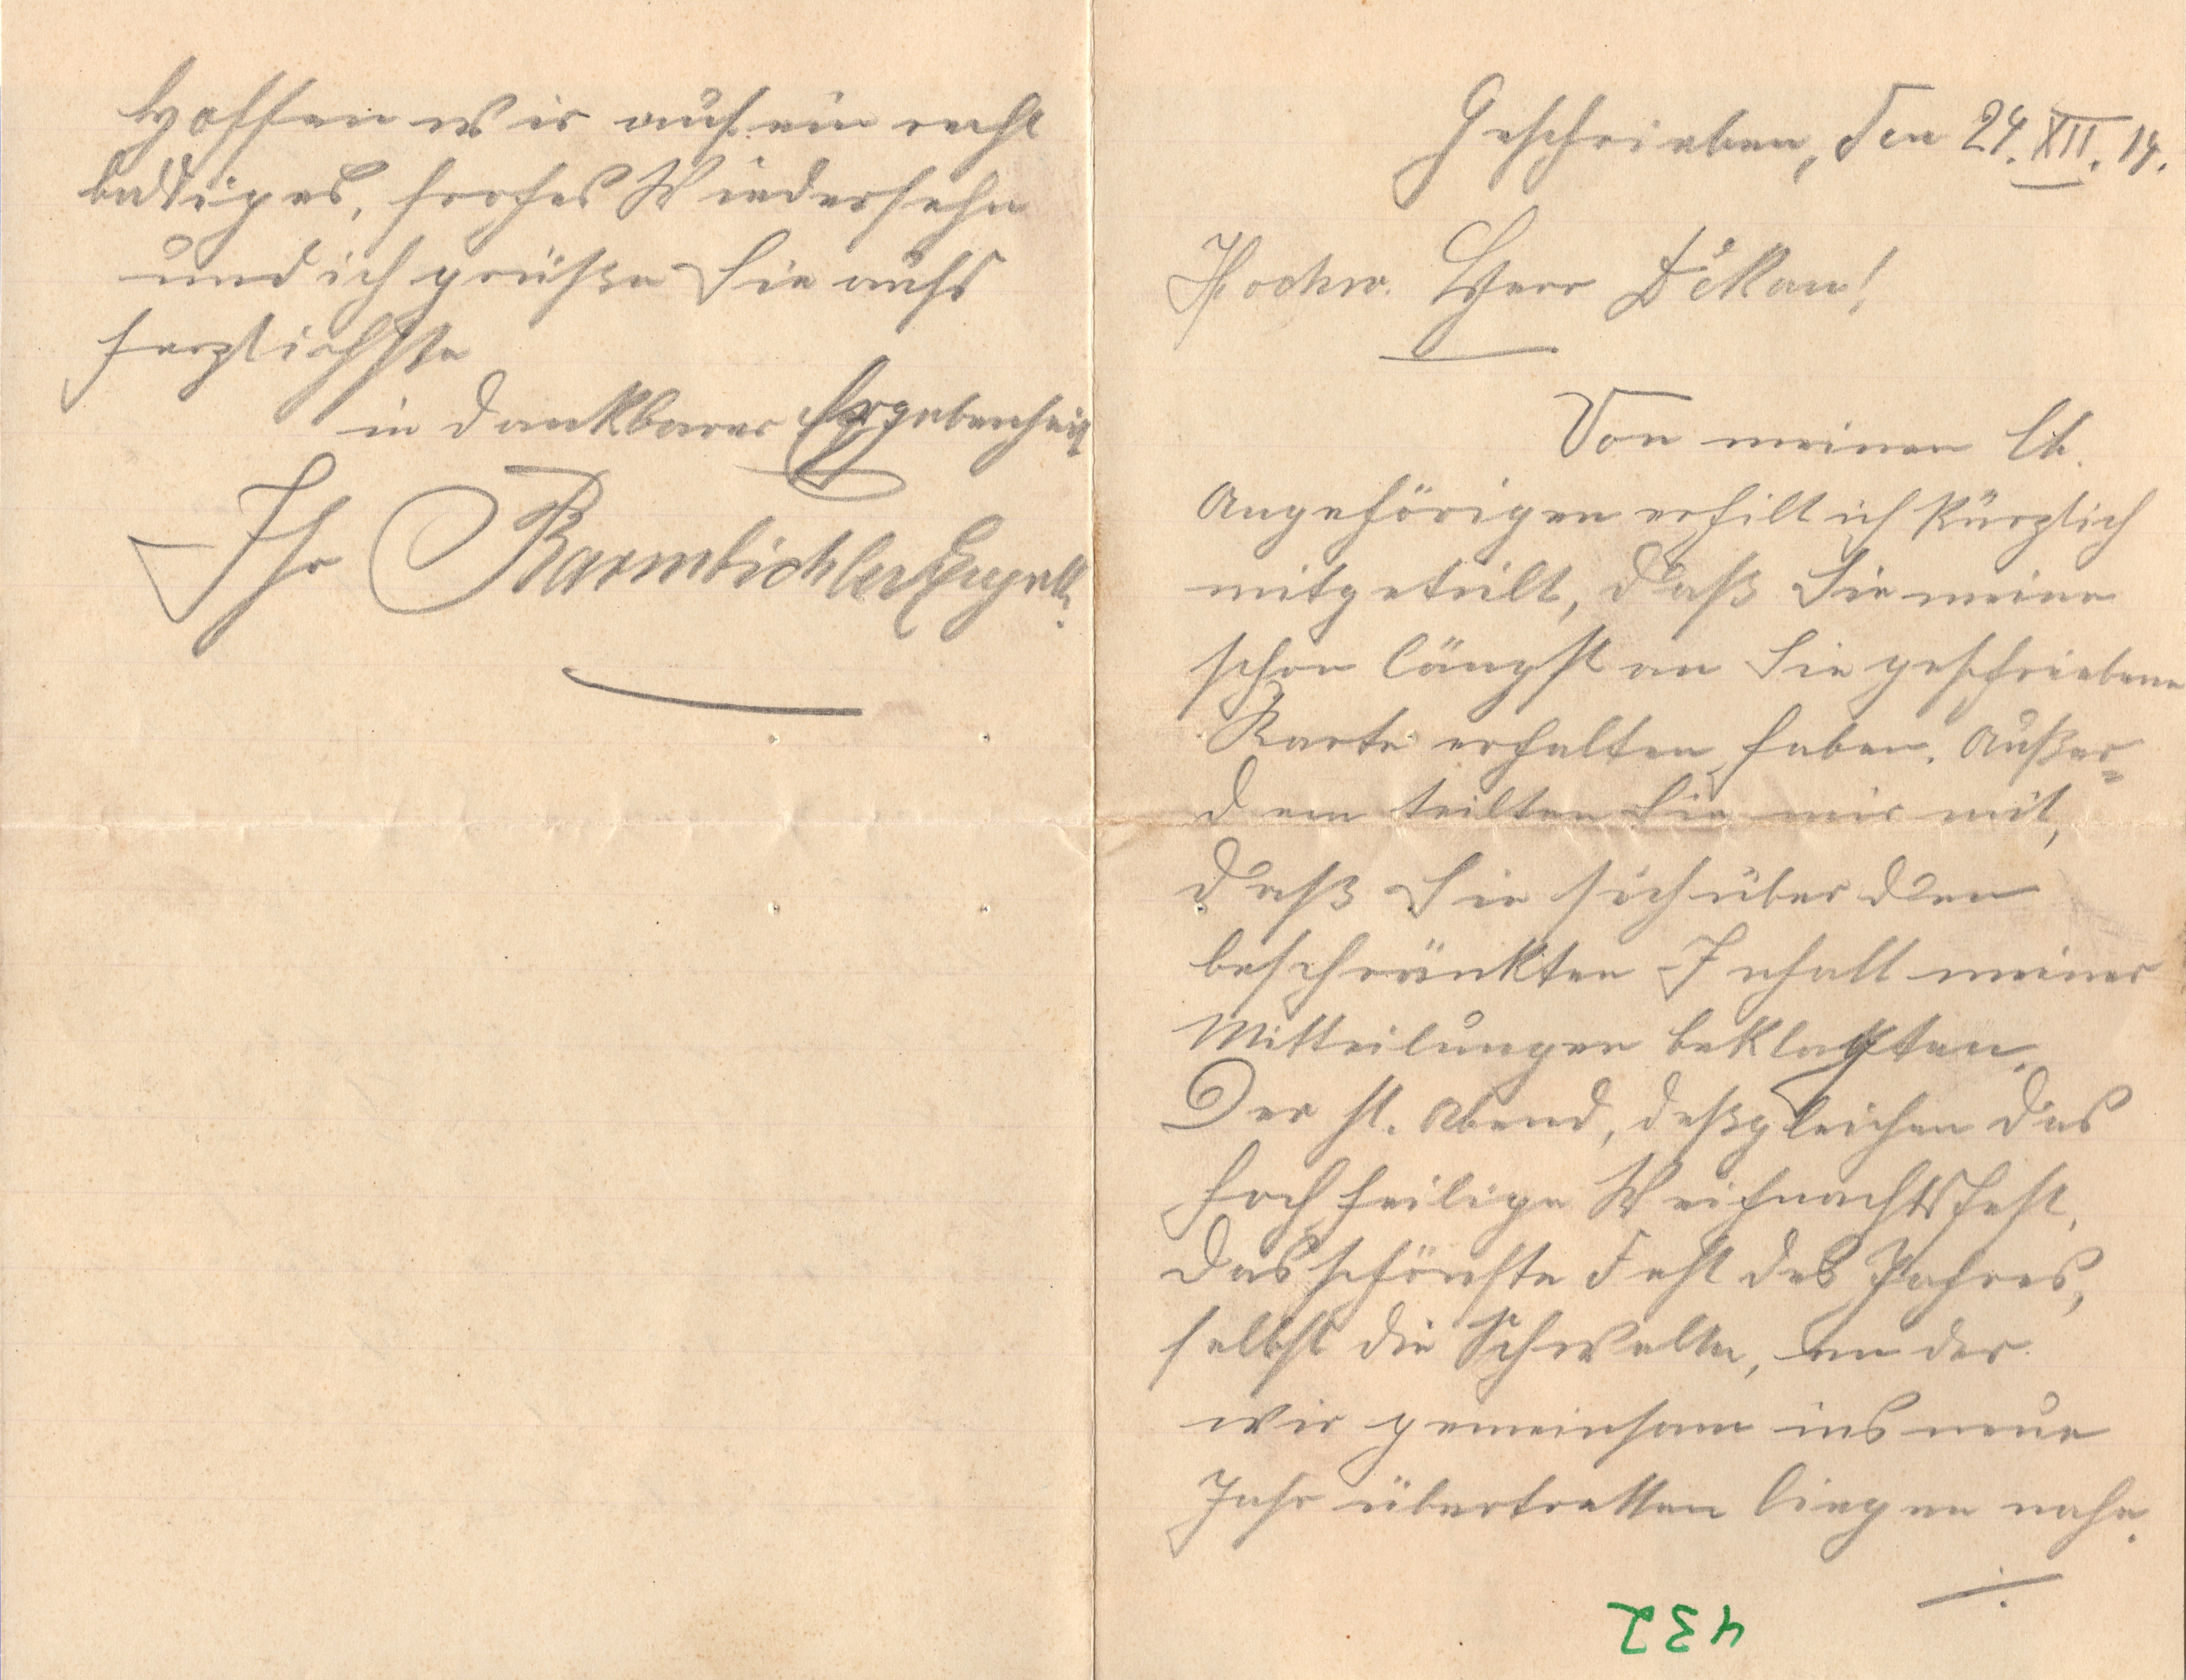 Geschrieben, den 24. XII. 14.
Hochw. Herr Dekan!
Von meinen lb.
Angehörigen erhilt ich kürzlich
mitgeteilt, daß Sie meine
schon längst an Sie geschriebene
Karte erhalten haben. Außer=
dem teilten Sie mir mit,
daß Sie sich über den
beschränkten Inhalt meiner
Mitteilungen beklagten.
Der hl. Abend, deßgleichen das
hochheilige Weihnachtsfest,
das schönste Fest des Jahres,
selbst die Schwelle, an der
wir gemeinsam ins neue
Jahr übertretten liegen nahe.
./.
432
Hoffen wir auf ein recht
baldiges, frohes Wiedersehn
und ich grüße Sie aufs
herzlichste
in dankbarer Ergebenheit
Ihr Barmbichler